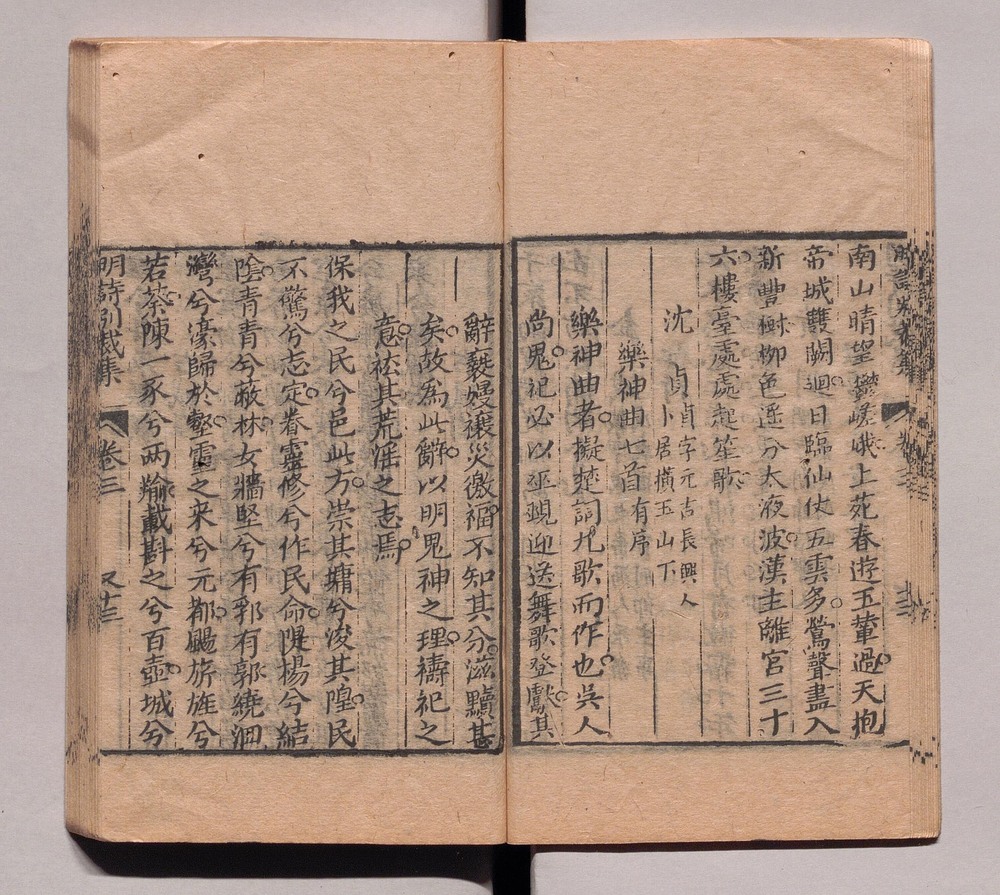 南山晴望鬱嵯峨上苑春遊玉輦過天抱
帝城雙闕迥日臨仙仗五雲多鶯聲盡入
新豐樹柳色遙分太液波漢主離宮三十
六樓臺處處起笙歌
沈貞貞字元吉長興人
卜居橫玉山下
樂神曲七首有序
樂神曲者擬楚詞九歌而作也吳人
尚鬼祀必以巫覡迎送舞歌登獻其
辭褻嫚禳災徼福不知其分滋黷甚
矣故為此辭以明鬼神之理禱祀之
意袪其荒淫之志焉
保我之民兮邑此方崇其墉兮浚其隍民
不驚兮志定眷靈修兮作民命隄楊兮結
陰青青兮蔽林女牆堅兮有郛有郭繞洄
灣兮濠歸於壑靈之来兮元都颺旂旌兮
若荼陳一豕兮兩羭載斟之兮百壺城兮
明詩別裁集
卷三
又十三